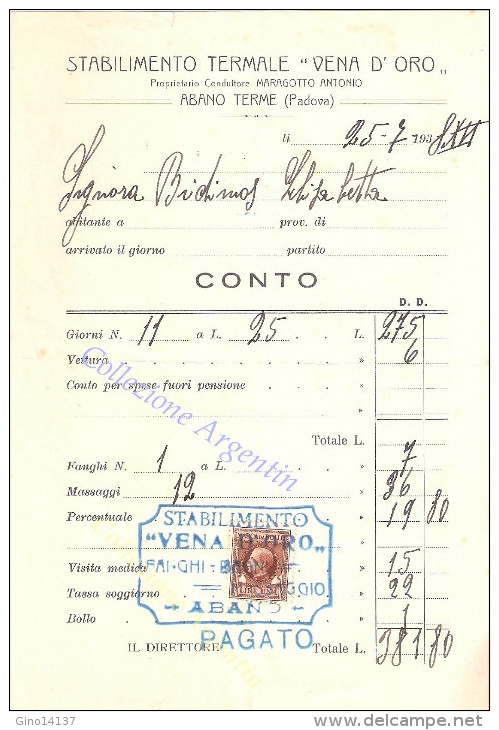 STABILIMENTO TERMALE "VENA D' ORO„
Proprietario Conduttore MARAGOTTO ANTONIO
ABANO TERME (Padova)
li 25-7 1938 XVI
Signora Elisabetta
abitante a prov. di
arrivato il giorno partito
CONTO
D. D.
Giorni N. 11 a L. 25 L. 275
Vettura » 6
Conto per spese fuori pensione »
»
Totale L.
Fanghi N. 1 a L. » 7
Massaggi 12 » 36
Percentuale » 19 80
STABILIMENTO
"VENA D'ORO„
FANGHI - BAGNI
Visita medica » 15
Tassa soggiorno » 22
ABANO
Bollo » 1
PAGATO
IL DIRETTORE Totale L. 381 80
Collezione Argentin
Gino14137
delcampe.net